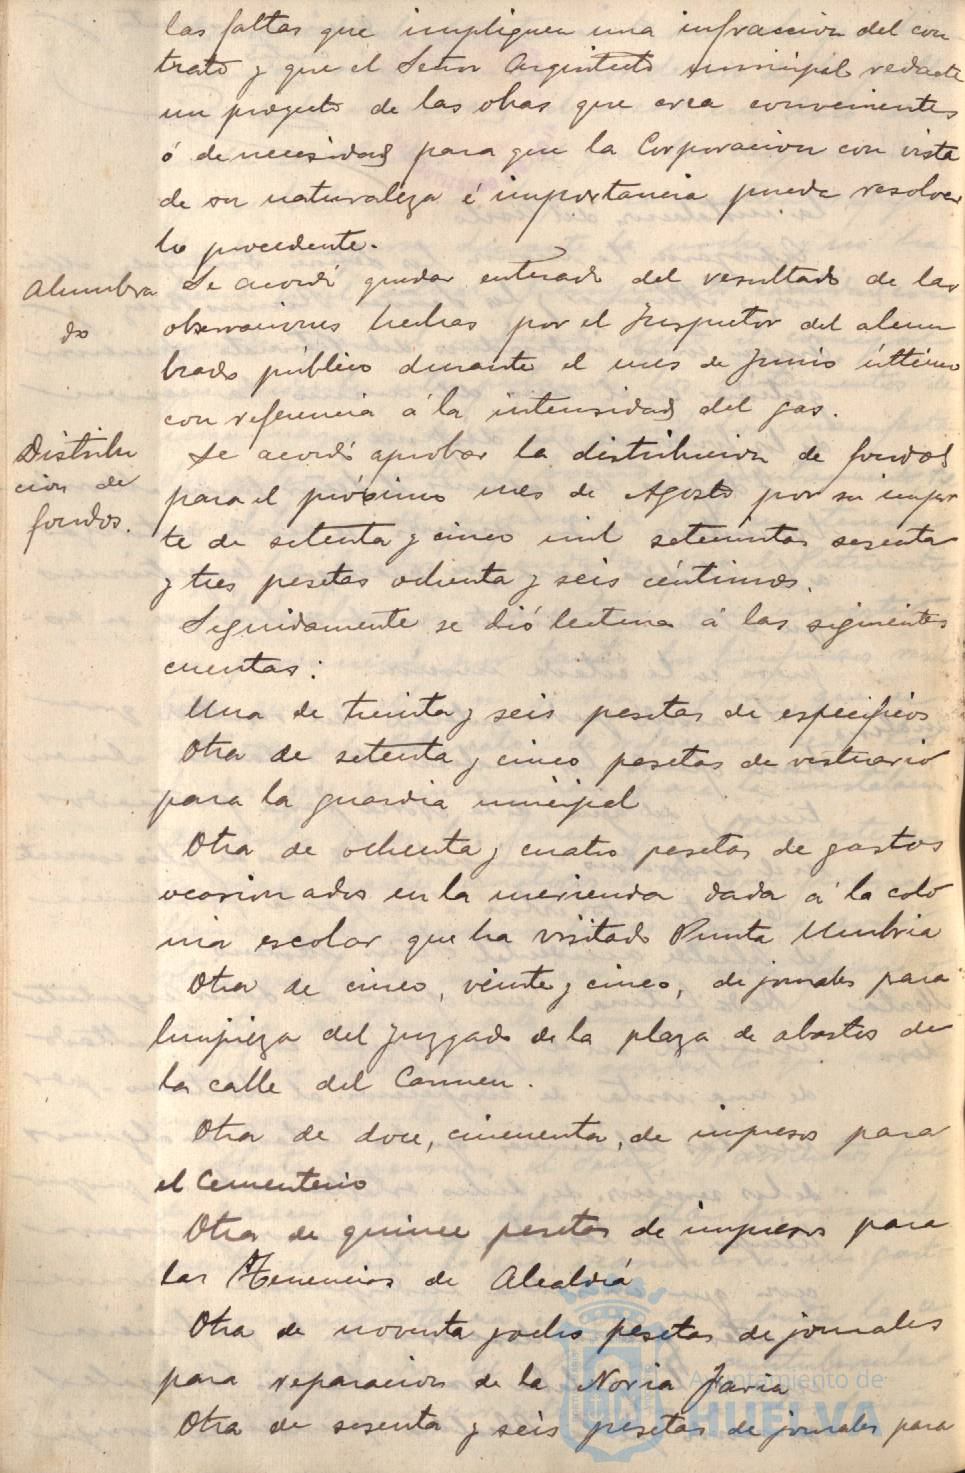 las faltas que impliquen una infraccion del con
trato y que el Señor Arquitecto municipal redacte
un proyecto de las obras que crea convenientes
ó de necesidad para que la Corporacion con vista
de su naturaleza é importancia pueda resolver
lo procedente.
Alumbra
do
Se acordó quedar enterado del resultado de las
observaciones hechas por el Inspector del alum
brado público durante el mes de Junio último
con referencia á la intensidad del gas.
Distribu
cion de
fondos.
Se acordó aprobar la distribucion de fondos
para el próximo mes de Agosto por su impor
te de setenta y cinco mil setecientas sesenta
y tres pesetas ochenta y seis céntimos.
Seguidamente se dió lectura á las siguientes
cuentas:
Una de treinta y seis pesetas de especificos
Otra de setenta y cinco pesetas de vestuario
para la guardia municipal
Otra de ochenta y cuatro pesetas de gastos
ocasionados en la merienda dada á la colo
nia escolar que ha visitado Punta Umbria
Otra de cinco, veinte y cinco, de jornales para
limpieza del Juzgado de la plaza de abastos de
la calle del Carmen.
Otra de doce, cincuenta, de impresos para
el Cementerio
Otra de quince pesetas de impresos para
las Tenencias de Alcaldía
Otra de noventa y ocho pesetas de jornales
para reparacion de la Noria
Otra de sesenta y seis pesetas de jornales para
Ayuntamiento de
HUELVA